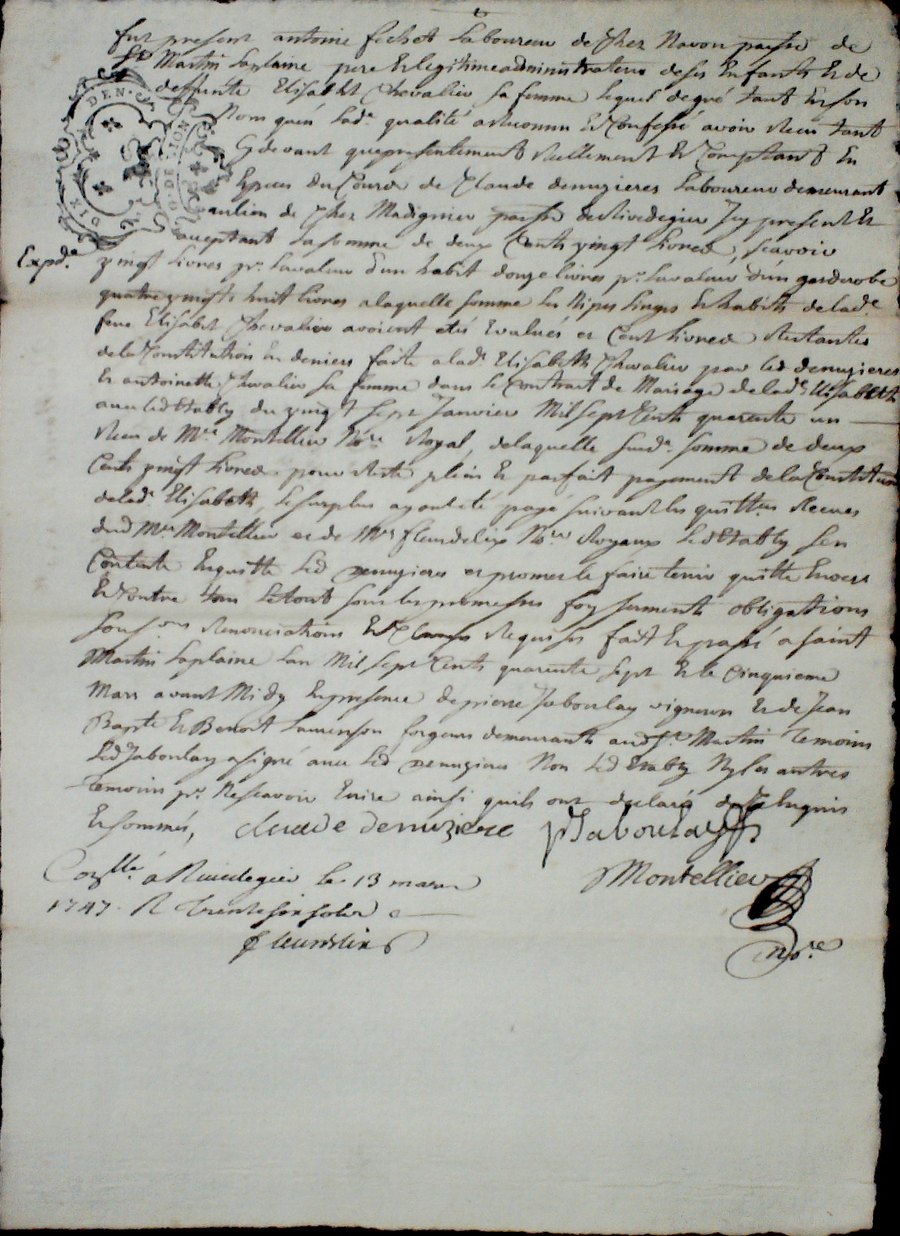 fut present antoine fichet Laboureur de Chez Navon parse de
St Martin Laplaine pere Et legitime administrateur de ses Enfants Et de
deffunte Elisabet Chevalier sa femme lequel de gré tant En son
Nom qu'en lade qualité a reconnu Et Confessé avoir Receu tant
Cy devant que presentement Reellement Et Comptant En
Especes du Cours de Claude denuzieres Laboureur demeurant
au lieu de Chez Madignier parsse de Rivedegier Icy present Et
acceptant La somme de deux Cents vingt livres, scavoir
Expde
vingt livres pr. La valeur d'un habit douze livres pr. La valeur d'un garderobe
quatre vingts huit livres a laquelle somme les Nipes linges Et habits de lade
feue Elisabet Chevalier avoient etés Evalués et Cent livres Restantes
de la Constitution En deniers faite a lade Elisabeth Chevalier par led denuzieres
Et antoinette Chevalier sa femme dans le Contrat de Mariage de lade Elisabeth
avec led Etably du vingt sept Janvier Mil sept Cents quarente un
Receu de Me Montellier Nore Royal, de laquelle susde somme de deux
Cents vingt livres pour Reste plein Et parfait payement de la Constitution
de lade Elisabeth, le surplus ayant eté payé suivant les quittces Receues
dud Me Montellier et de Me fleurdelix Nores Royaux led Etably s'en
Contente En quitte led denuzieres et promet le faire tenir quitte Envers
Et Contre tous Le tout sous les promesses foy serments obligations
soubs ons Renonciations Et Clauses Requises fait Et passé a saint
Martin Laplaine L'an Mil sept Cents quarente sept Et le Cinquieme
Mars avant Midy En presence de pierre Jaboulay vigneron Et de Jean
Bapte Et Benoit Laurenson forgeurs demeurants aud St Martin Temoins
Led Jaboulay a signé avec led denuzieres Non led Etably Ny les autres
Temoins pr. Ne scavoir Ecrire ainsi qu'ils ont declaré de ce Enquis
Et sommés, claude denuziere pJaboulay
Conllé á Rivedegier le 13 mars
Montéllier
1747. R Trente six sols
fleurdelix
Nore